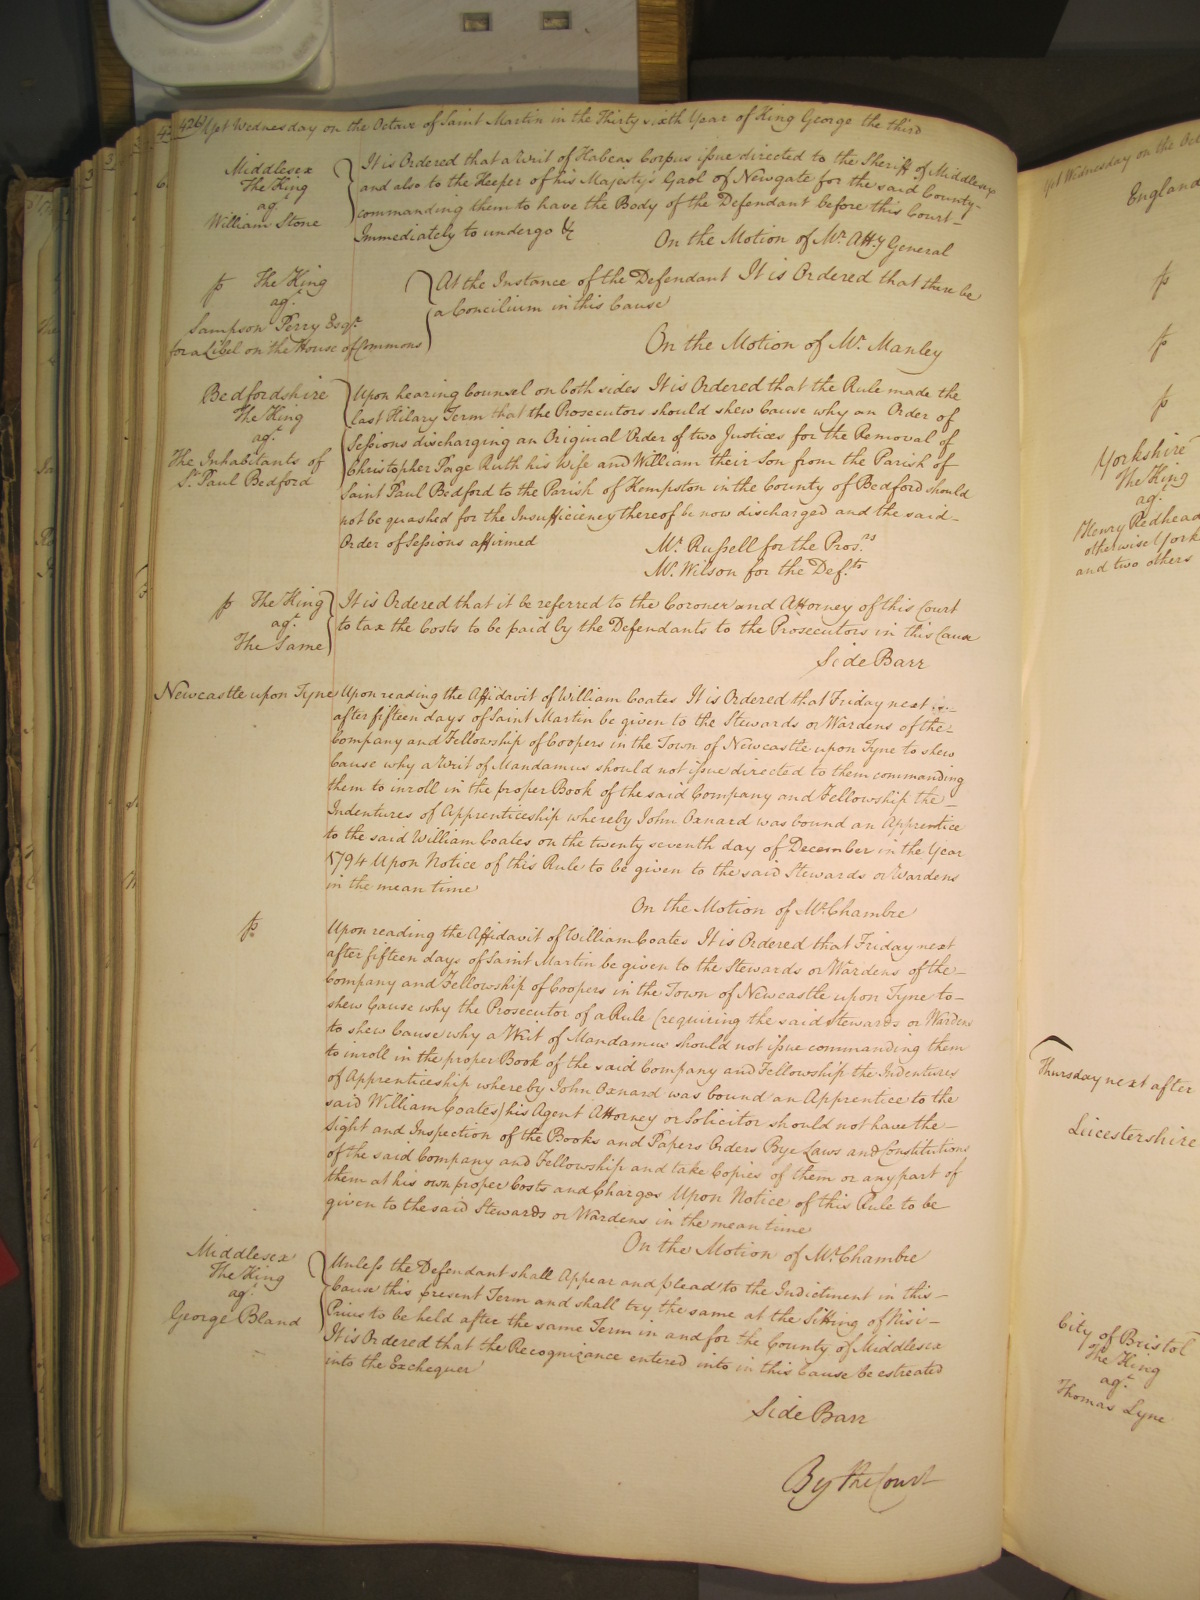 426
Yet Wednesday on the Octave of Saint Martin in the Thirty sixth Year of King George the third
Middlesex
The King
agt
William Stone
It is Ordered that a Writ of Habeas Corpus issue directed to the Sheriff of Middlesex
and also to the Keeper of his Majesty's Gaol of Newgate for the said County
commanding them to have the Body of the Defendant before this Court
Immediately to undergo &c
On the Motion of Mr. Atty General
The King
agt
Sampson Perry Esqr.
for a Libel on the House of Commons
At the Instance of the Defendant It is Ordered that there be
a Concilium in this Cause
On the Motion of Mr. Manley
Bedfordshire
The King
agt
The Inhabitants of
St. Paul Bedford
Upon hearing Counsel on both sides It is Ordered that the Rule made the
last Hilary Term that the Prosecutors should shew Cause why an Order of
Sessions discharging an Original Order of two Justices for the Removal of
Christopher Page Ruth his Wife and William their Son from the Parish of
Saint Paul Bedford to the Parish of Kempston in the County of Bedford should
not be quashed for the Insufficiency thereof be now discharged and the said
Order of Sessions affirmed
Mr. Russell for the Pros.rs
Mr. Wilson for the Def.ts
The King
agt.
The Same
It is Ordered that it be referred to the Coroner and Attorney of this Court
to tax the Costs to be paid by the Defendants to the Prosecutors in this Cause
Side Barr
Newcastle upon Tyne
Upon reading the Affidavit of William Coates It is Ordered that Friday next
after fifteen days of Saint Martin be given to the Stewards or Wardens of the
Company and Fellowship of Coopers in the Town of Newcastle upon Tyne to shew
Cause why a Writ of Mandamus should not issue directed to them commanding
them to inroll in the proper Book of the said Company and Fellowship the
Indentures of Apprenticeship whereby John Oxnard was bound an Apprentice
to the said William Coates on the twenty seventh day of December in the Year
1794 Upon Notice of this Rule to be given to the said Stewards or Wardens
in the mean time
On the Motion of Mr. Chambre
Upon reading the Affidavit of William Coates It is Ordered that Friday next
after fifteen days of Saint Martin be given to the Stewards or Wardens of the
Company and Fellowship of Coopers in the Town of Newcastle upon Tyne to
shew Cause why the Prosecutor of a Rule (requiring the said Stewards or Wardens
to shew Cause why a Writ of Mandamus should not issue commanding them
to inroll in the proper Book of the said Company and Fellowship the Indentures
of Apprenticeship whereby John Oxnard was bound an Apprentice to the
said William Coates) his Agent Attorney or Solicitor should not have the
Sight and Inspection of the Books and Papers Orders Bye Laws and Constitutions
of the said Company and Fellowship and take Copies of them or any part of
them at his own proper Costs and Charges Upon Notice of this Rule to be
given to the said Stewards or Wardens in the mean time
On the Motion of Mr. Chambre
Middlesex
The King
agt.
George Bland
Unless the Defendant shall Appear and plead to the Indictment in this
Cause this present Term and shall try the same at the Sitting of Nisi
Prius to be held after the same Term in and for the County of Middlesex
It is Ordered that the Recognizance entered into in this Cause be estreated
into the Exchequer
Side Barr
By the Court
Yet Wednesday on the Oc
England
Yorkshire
The King
agt.
Henry Redhead
otherwise York
and two others
Thursday next after
Leicestershire
City of Bristol
The King
agt.
Thomas Lyne